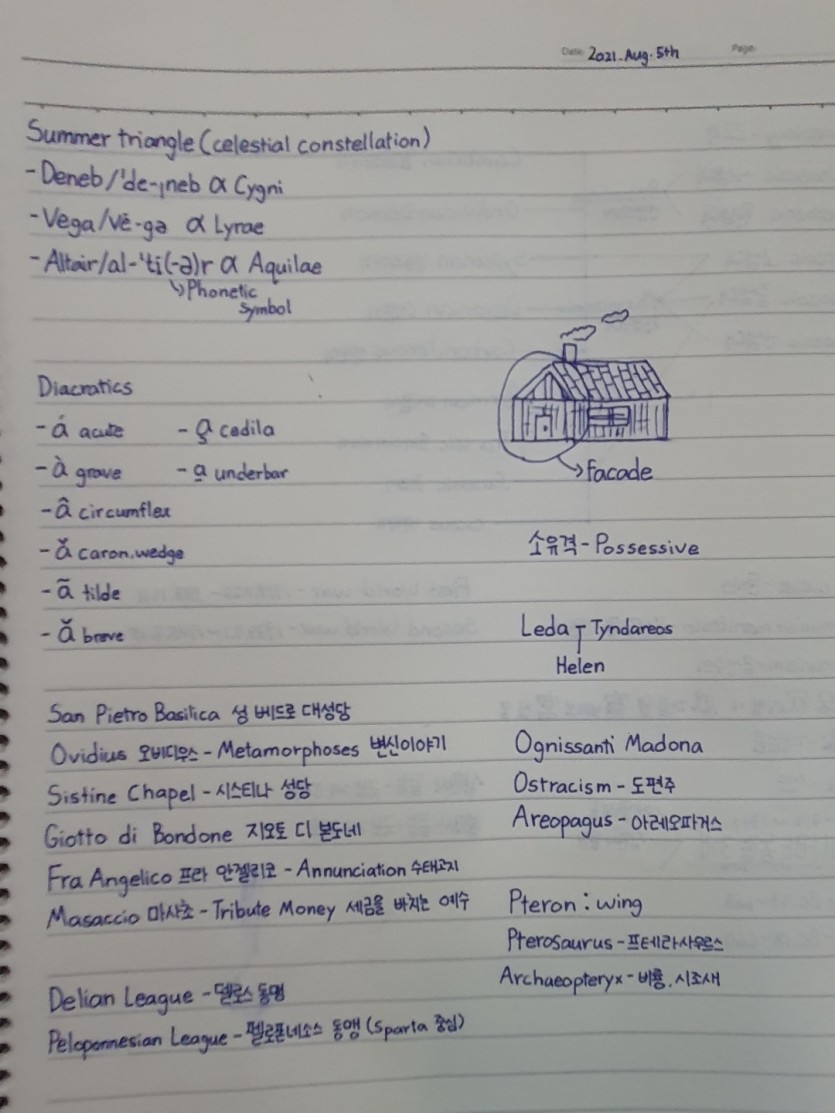 Date: 2021. Aug. 5th Page:
Summer triangle (celestial constellation)
- Deneb/'de-ˌneb α Cygni
- Vega/vē-gə α Lyrae
- Altair/al-'tī(-ə)r α Aquilae
↳Phonetic
symbol
Diacratics
- á acute - a̧ cedila
- à grave - a̲ underbar
- â circumflex
- ǎ caron.wedge
- ã tilde
- ă breve
→facade
소유격 - Possessive
Leda Tyndareos
Helen
San Pietro Basilica 성 베드로 대성당
Ovidius 오비디우스 - Metamorphoses 변신이야기
Sistine Chapel - 시스티나 성당
Giotto di Bondone 지오토 디 본도네
Fra Angelico 프라 안젤리코 - Annunciation 수태고지
Masaccio 마사초 - Tribute Money 세금을 바치는 예수
Delian League - 델로스 동맹
Peloponnesian League - 펠로폰네소스 동맹 (Sparta 중심)
Ognissanti Madona
Ostracism - 도편주
Areopagus - 아레오파거스
Pteron : wing
Pterosaurus - 프테라사우르스
Archaeopteryx - 비룡, 시조새